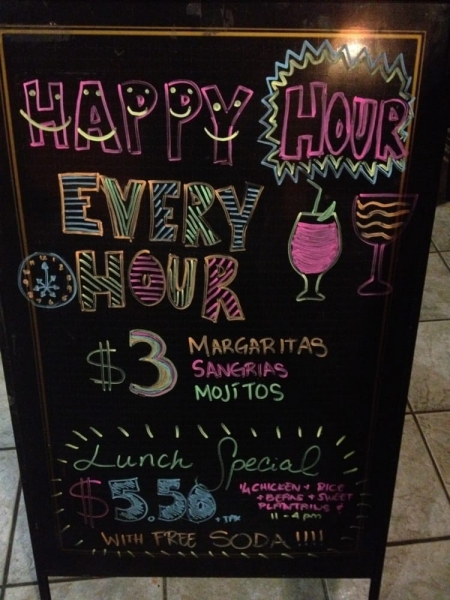 HAPPY HOUR
EVERY
HOUR
$3 MARGARITAS
SANGRIAS
MOJÍTOS
Lunch Special
$5.50 + TAX
1/4 CHICKEN + RICE
+ BEANS + SWEET
PLANTAINS +
11 - 4 pm
WITH FREE SODA !!!!